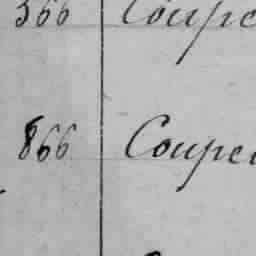 566 Coupe
866 Coupe